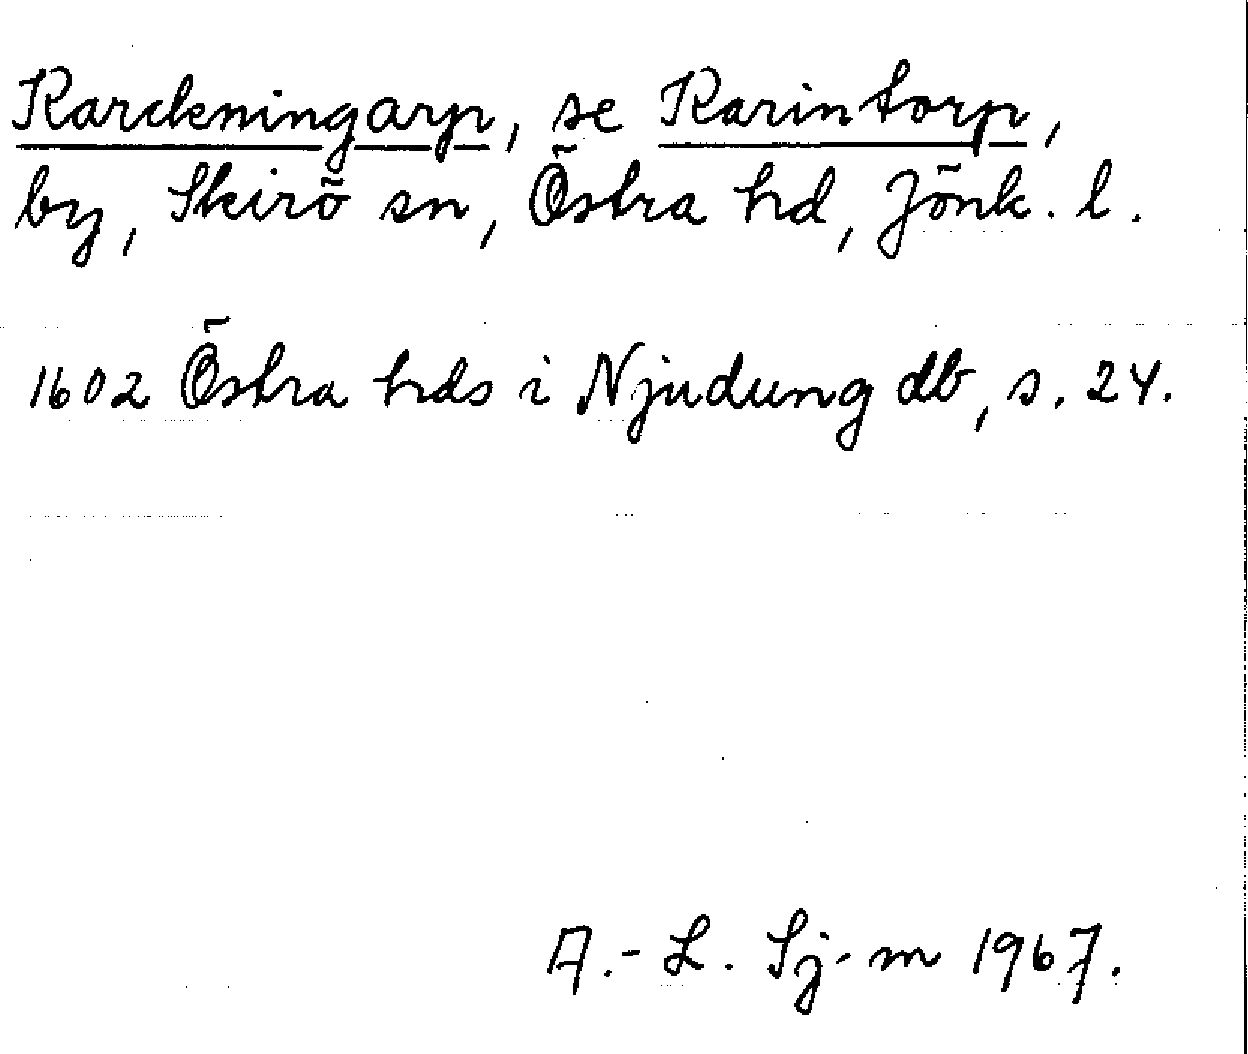 Karckeningarp, se Karintorp,
by, Skirö sn, Östra hd, Jönk. l.
1602 Östra hds i Njudung db, s. 24.
A.-L. Sj-m 1967.